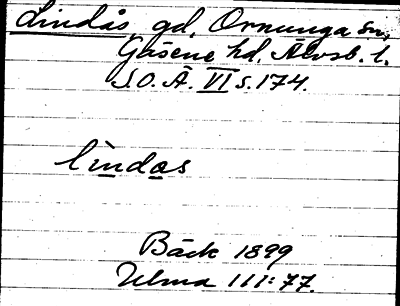 Lindås gd, Ornunga sn,
Gäsene hd, Älvsb. l.
S.O.Ä. VI s. 174.
lindas
Bäck 1899
Ulma 111:77.